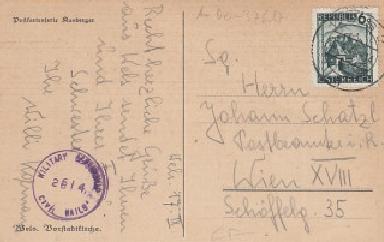 Postkartenserie Kasberger
Recht herzliche Grüße
aus Wels sendet Ihnen
und Ihrer
Schwester
Ihr
Willi
Wels.
MILITARY CENSORSHIP
2614
CIVIL MAILS
Wels. Vorstadtkirche.
REPUBLIK
6
ÖSTERREICH
Sg.
Herrn
Johann Schatzl
Postbeamter i. R.
Wien XVIII
Schöffelg. 35